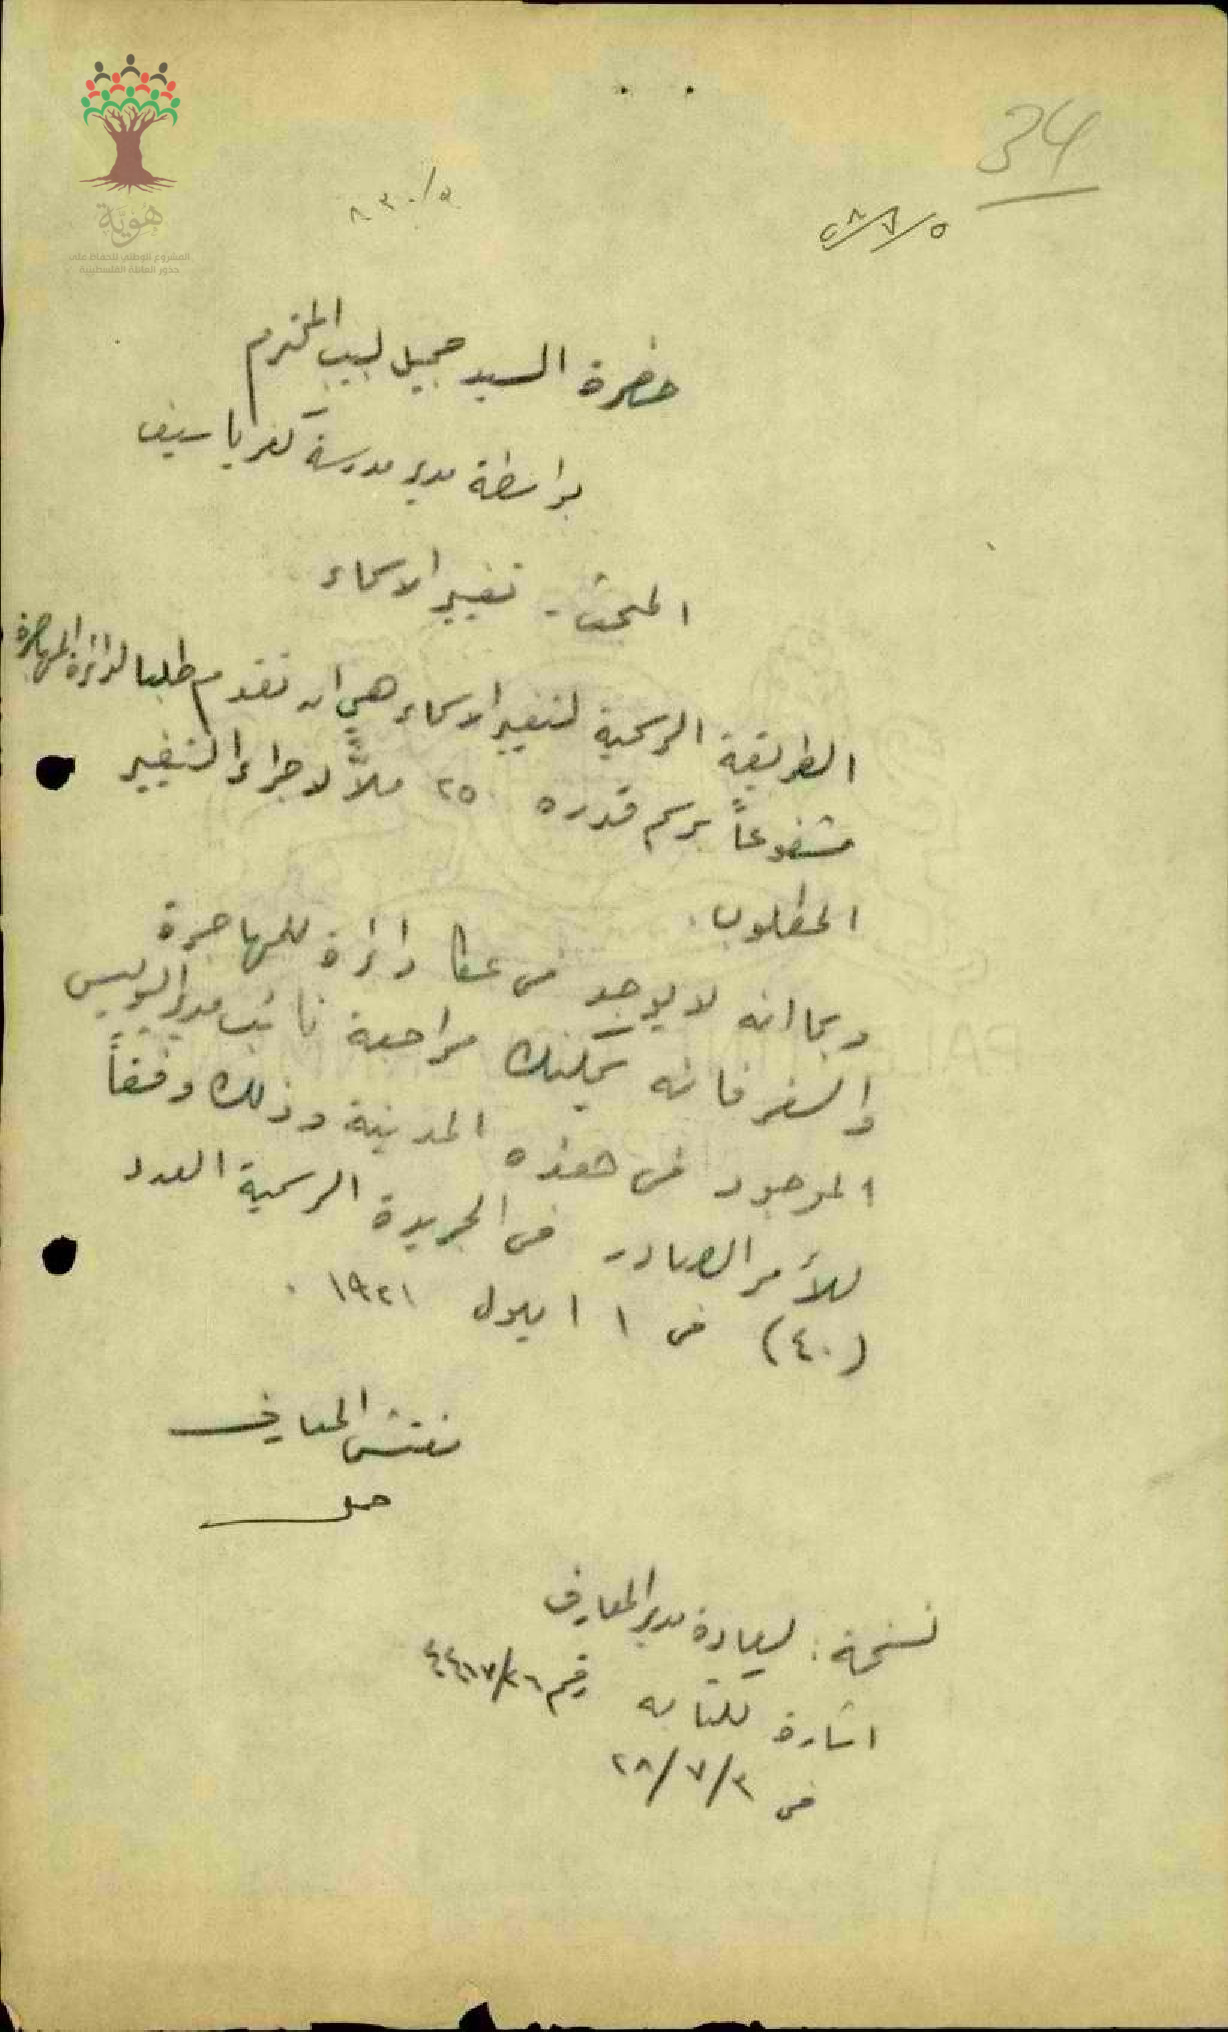 34
٥/٧/٢٨
٨٣٠/٥
هوية
المشروع الوطني للحفاظ على
جذور العائلة الفلسطينية
حضرة السيد جميل لبيب المحترم
بواسطة مدير مدرسة كفر ياسيف
المبحث - تغيير الاسماء
الطريقة الرسمية لتغيير الاسماء هي ان تقدم طلبا لدائرة المهاجرة
مشفوعاً برسم قدره ٢٥٠ ملاً لاجراء التغيير
المطلوب.
وبما انه لا يوجد في عكا دائرة للمهاجرة
والسفر فانه يمكنك مراجعة نائب مدير البوليس
الموجود في هذه المدينة وذلك وفقاً
للأمر الصادر في الجريدة الرسمية العدد
(٤٠) في ١ ايلول ١٩٢١.
مفتش المعارف
نسخة: لسعادة مدير المعارف
اشارة لكتابه رقم
في ٣/٧/٢٨
PALESTINE